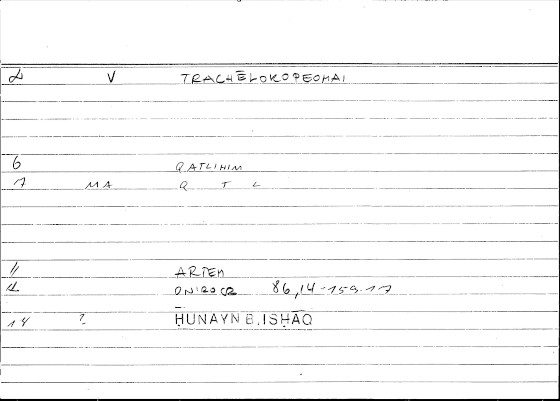 2 V TRACHĒLOKOPEOMAI
6 QATLIHIM
7 MA Q T L
11 ARTEM
12 ONIROCR 86,14-159.17
14 2 ḤUNAYN B. ISḤĀQ